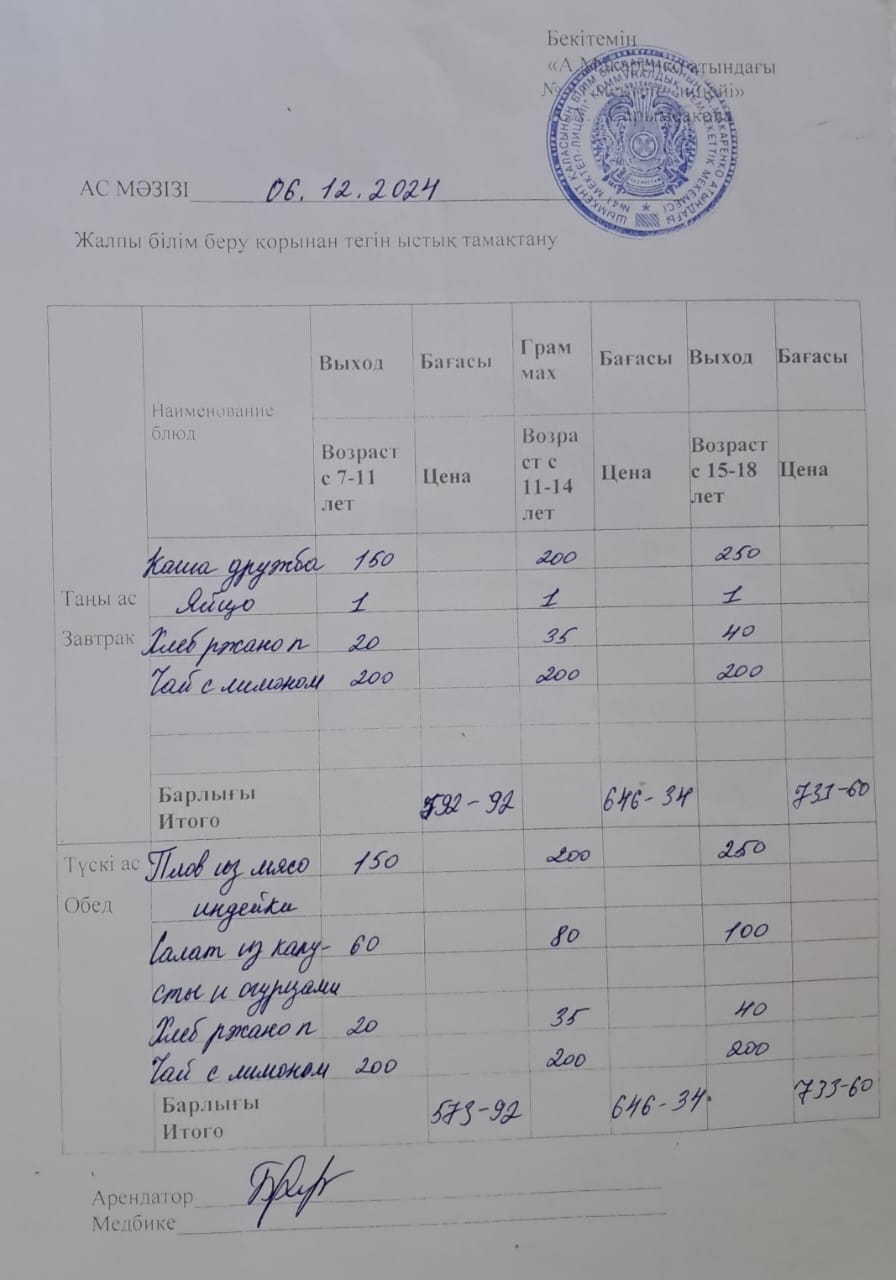 Бекітемін
«А.Макаренко атындағы
АС МӘЗІЗІ 06.12.2024
Жалпы білім беру қорынан тегін ыстық тамақтану
Наименование блюд
Выход Бағасы Грам мах Бағасы Выход Бағасы
Возраст с 7-11 лет Цена Возра ст с 11-14 лет Цена Возраст с 15-18 лет Цена
Каша дружба 150 200 250
Таңы ас Яйцо 1 1 1
Завтрак Хлеб ржано п 20 35 40
Чай с лимоном 200 200 200
Барлығы
Итого 592-92 646-34 731-60
Түскі ас Плов из мясо 150 200 250
Обед индейки
Салат из капу- 60 80 100
сты и огурцами
Хлеб ржано п 20 35 40
Чай с лимоном 200 200 200
Барлығы
Итого 573-92 646-34 733-60
Арендатор
Медбике